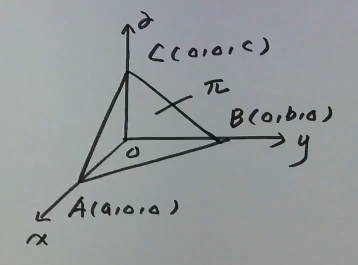 z
C(0,0,c)
π
B(0,b,0)
0
y
A(a,0,0)
x